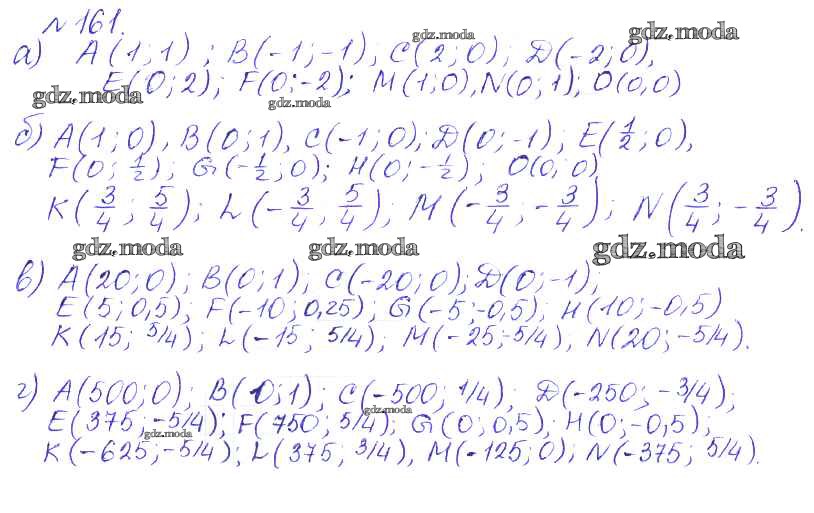 №161.
а) A(1;1); B(-1;-1), C(2;0); D(-2;0),
E(0;2); F(0;-2); M(1;0), N(0;1); O(0,0)
б) A(1;0), B(0;1), C(-1;0); D(0;-1); E(1/2;0),
F(0;1/2); G(-1/2;0); H(0;-1/2); O(0;0)
K(3/4;5/4); L(-3/4;5/4); M(-3/4;-3/4); N(3/4;-3/4).
в) A(20;0); B(0;1), C(-20;0); D(0;-1);
E(5;0,5); F(-10;0,25); G(-5;-0,5); H(10;-0,5)
K(15;5/4); L(-15;5/4); M(-25;-5/4), N(20;-5/4).
г) A(500;0); B(0;1); C(-500;1/4); D(-250;-3/4);
E(375;-5/4); F(750;5/4); G(0;0,5); H(0;-0,5);
K(-625;-5/4); L(375;3/4), M(-125;0); N(-375;5/4).
gdz.moda
gdz.moda
gdz.moda
gdz.moda
gdz.moda
gdz.moda
gdz.moda
gdz.moda
gdz.moda